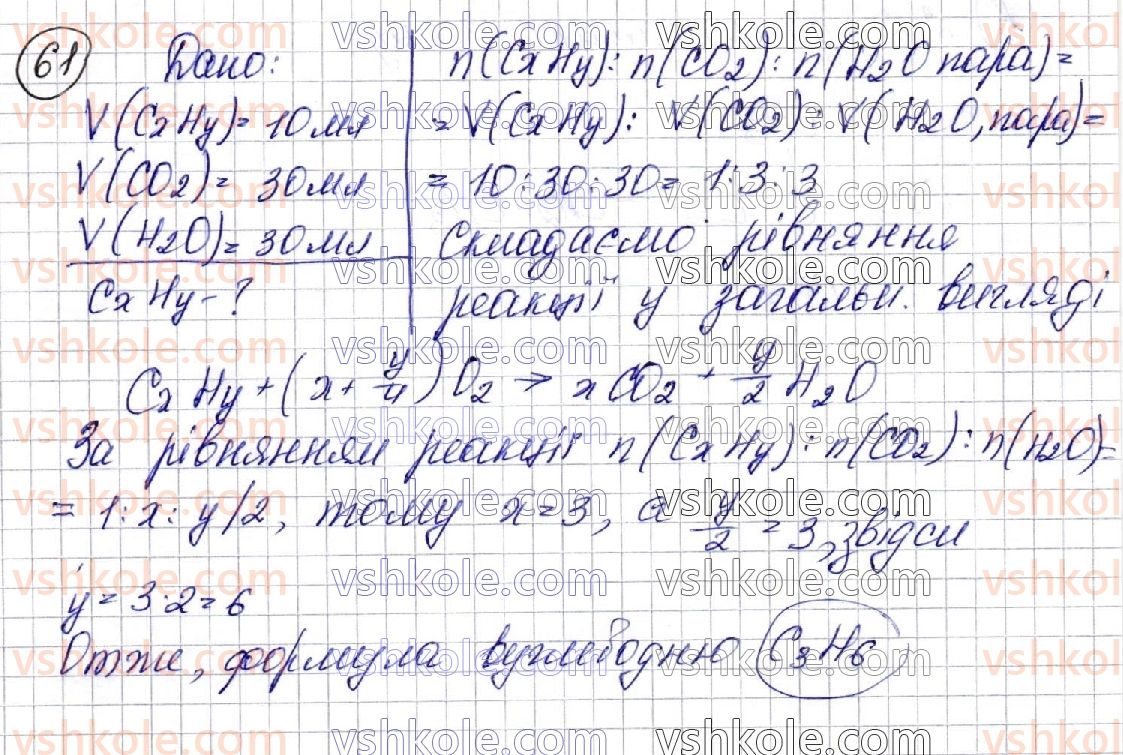 61 Дано:
V(CxHy)= 10 мл
V(CO2)= 30 мл
V(H2O)= 30 мл
CxHy - ?
n(CxHy): n(CO2): n(H2O пара)=
= V(CxHy): V(CO2): V(H2O, пара)=
= 10:30:30= 1:3:3
Складаємо рівняння
реакції у загальн. вигляді
CxHy + (x + y/4) O2 → xCO2 + y/2 H2O
За рівнянням реакції n(CxHy): n(CO2): n(H2O)=
= 1:x: y/2, тому x=3, а y/2 = 3, звідси
y = 3·2= 6
Отже, формула вуглеводню C3H6
vshkole.com